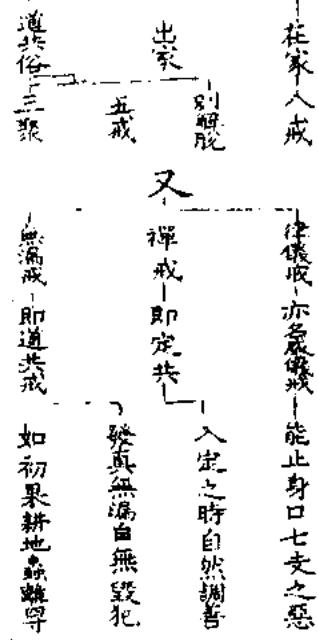 在家 八戒
出家
別解脫
五戒
道共俗 三聚
又
律儀戒 亦名威儀戒 能止身口七支之惡
禪戒 即定共
入定之時自然調善
發真無漏自無毀犯
無漏戒 即道共戒 如初果耕地蟲離四寸